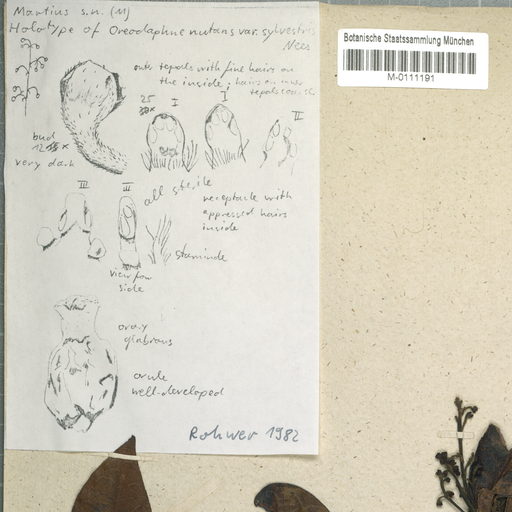 Martius s.n. (M)
Holotype of Oreodaphne nutans var. sylvestris
Nees
outer tepals with fine hairs on
the inside, hairs on inner
tepals
25
x
I
I
II
bud
12
x
very dark
III
III
all sterile
receptacle with
appressed hairs
inside
staminode
view from
side
ovary
glabrous
ovule
well-developed
Rohwer 1982
Botanische Staatssammlung München
M-0111191